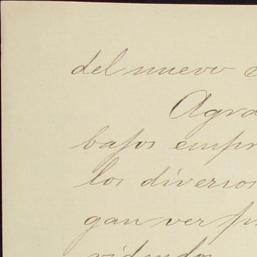 del nuevo
Agra
bajos empr
los diversos
gan ver